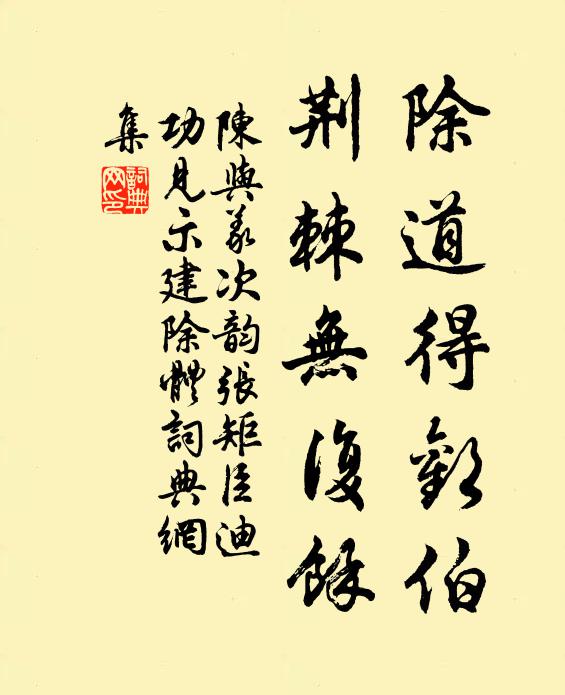 除道得歡伯
荆棘無復餘
陳與義次韻張矩臣迪
功見示建除體詞典網
集
詞典
网印